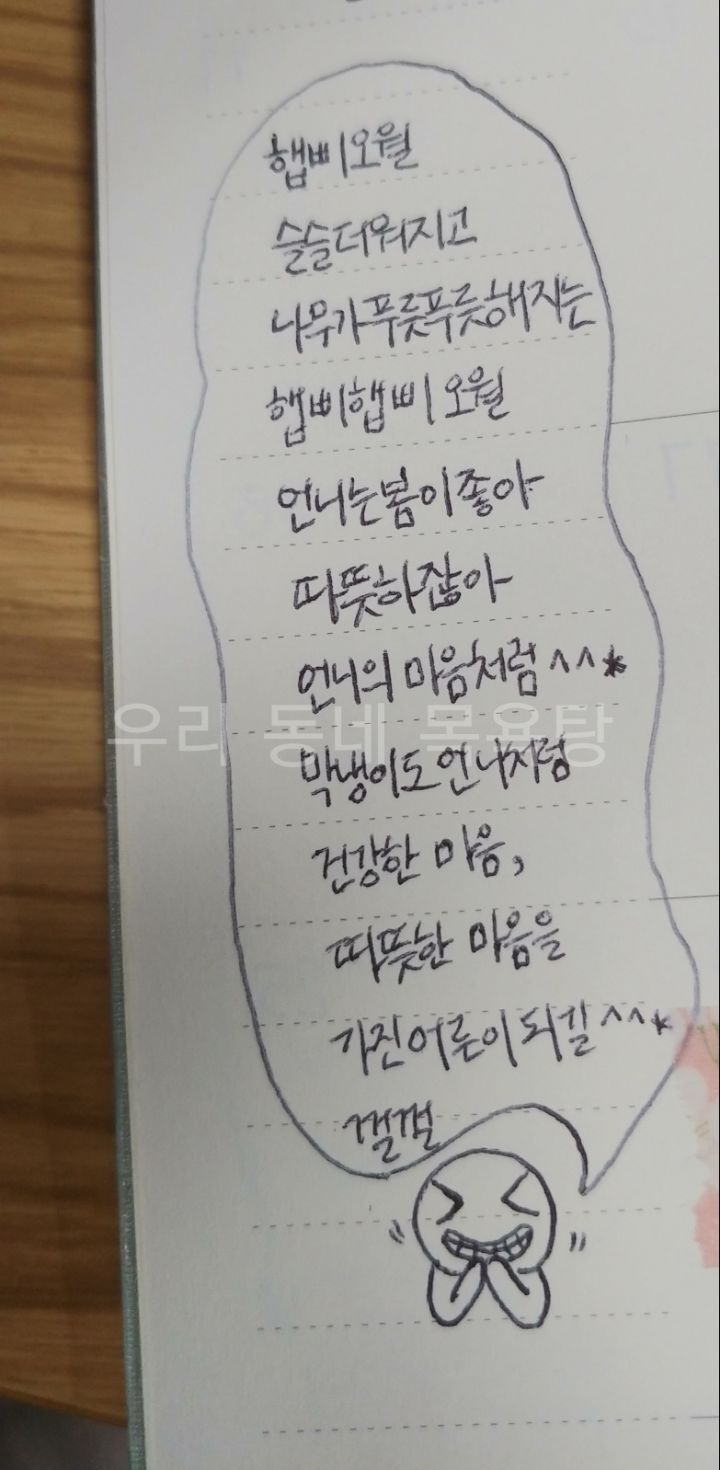 햅삐오월
슬슬더워지고
나무가푸릇푸릇해지는
햅삐햅삐 오월
언니는봄이좋아
따뜻하잖아
언니의 마음처럼 ^^*
우리 동네 목욕탕
막냉이도 언니처럼
건강한 마음,
따뜻한 마음을
가진어른이되길 ^^*
껄껄